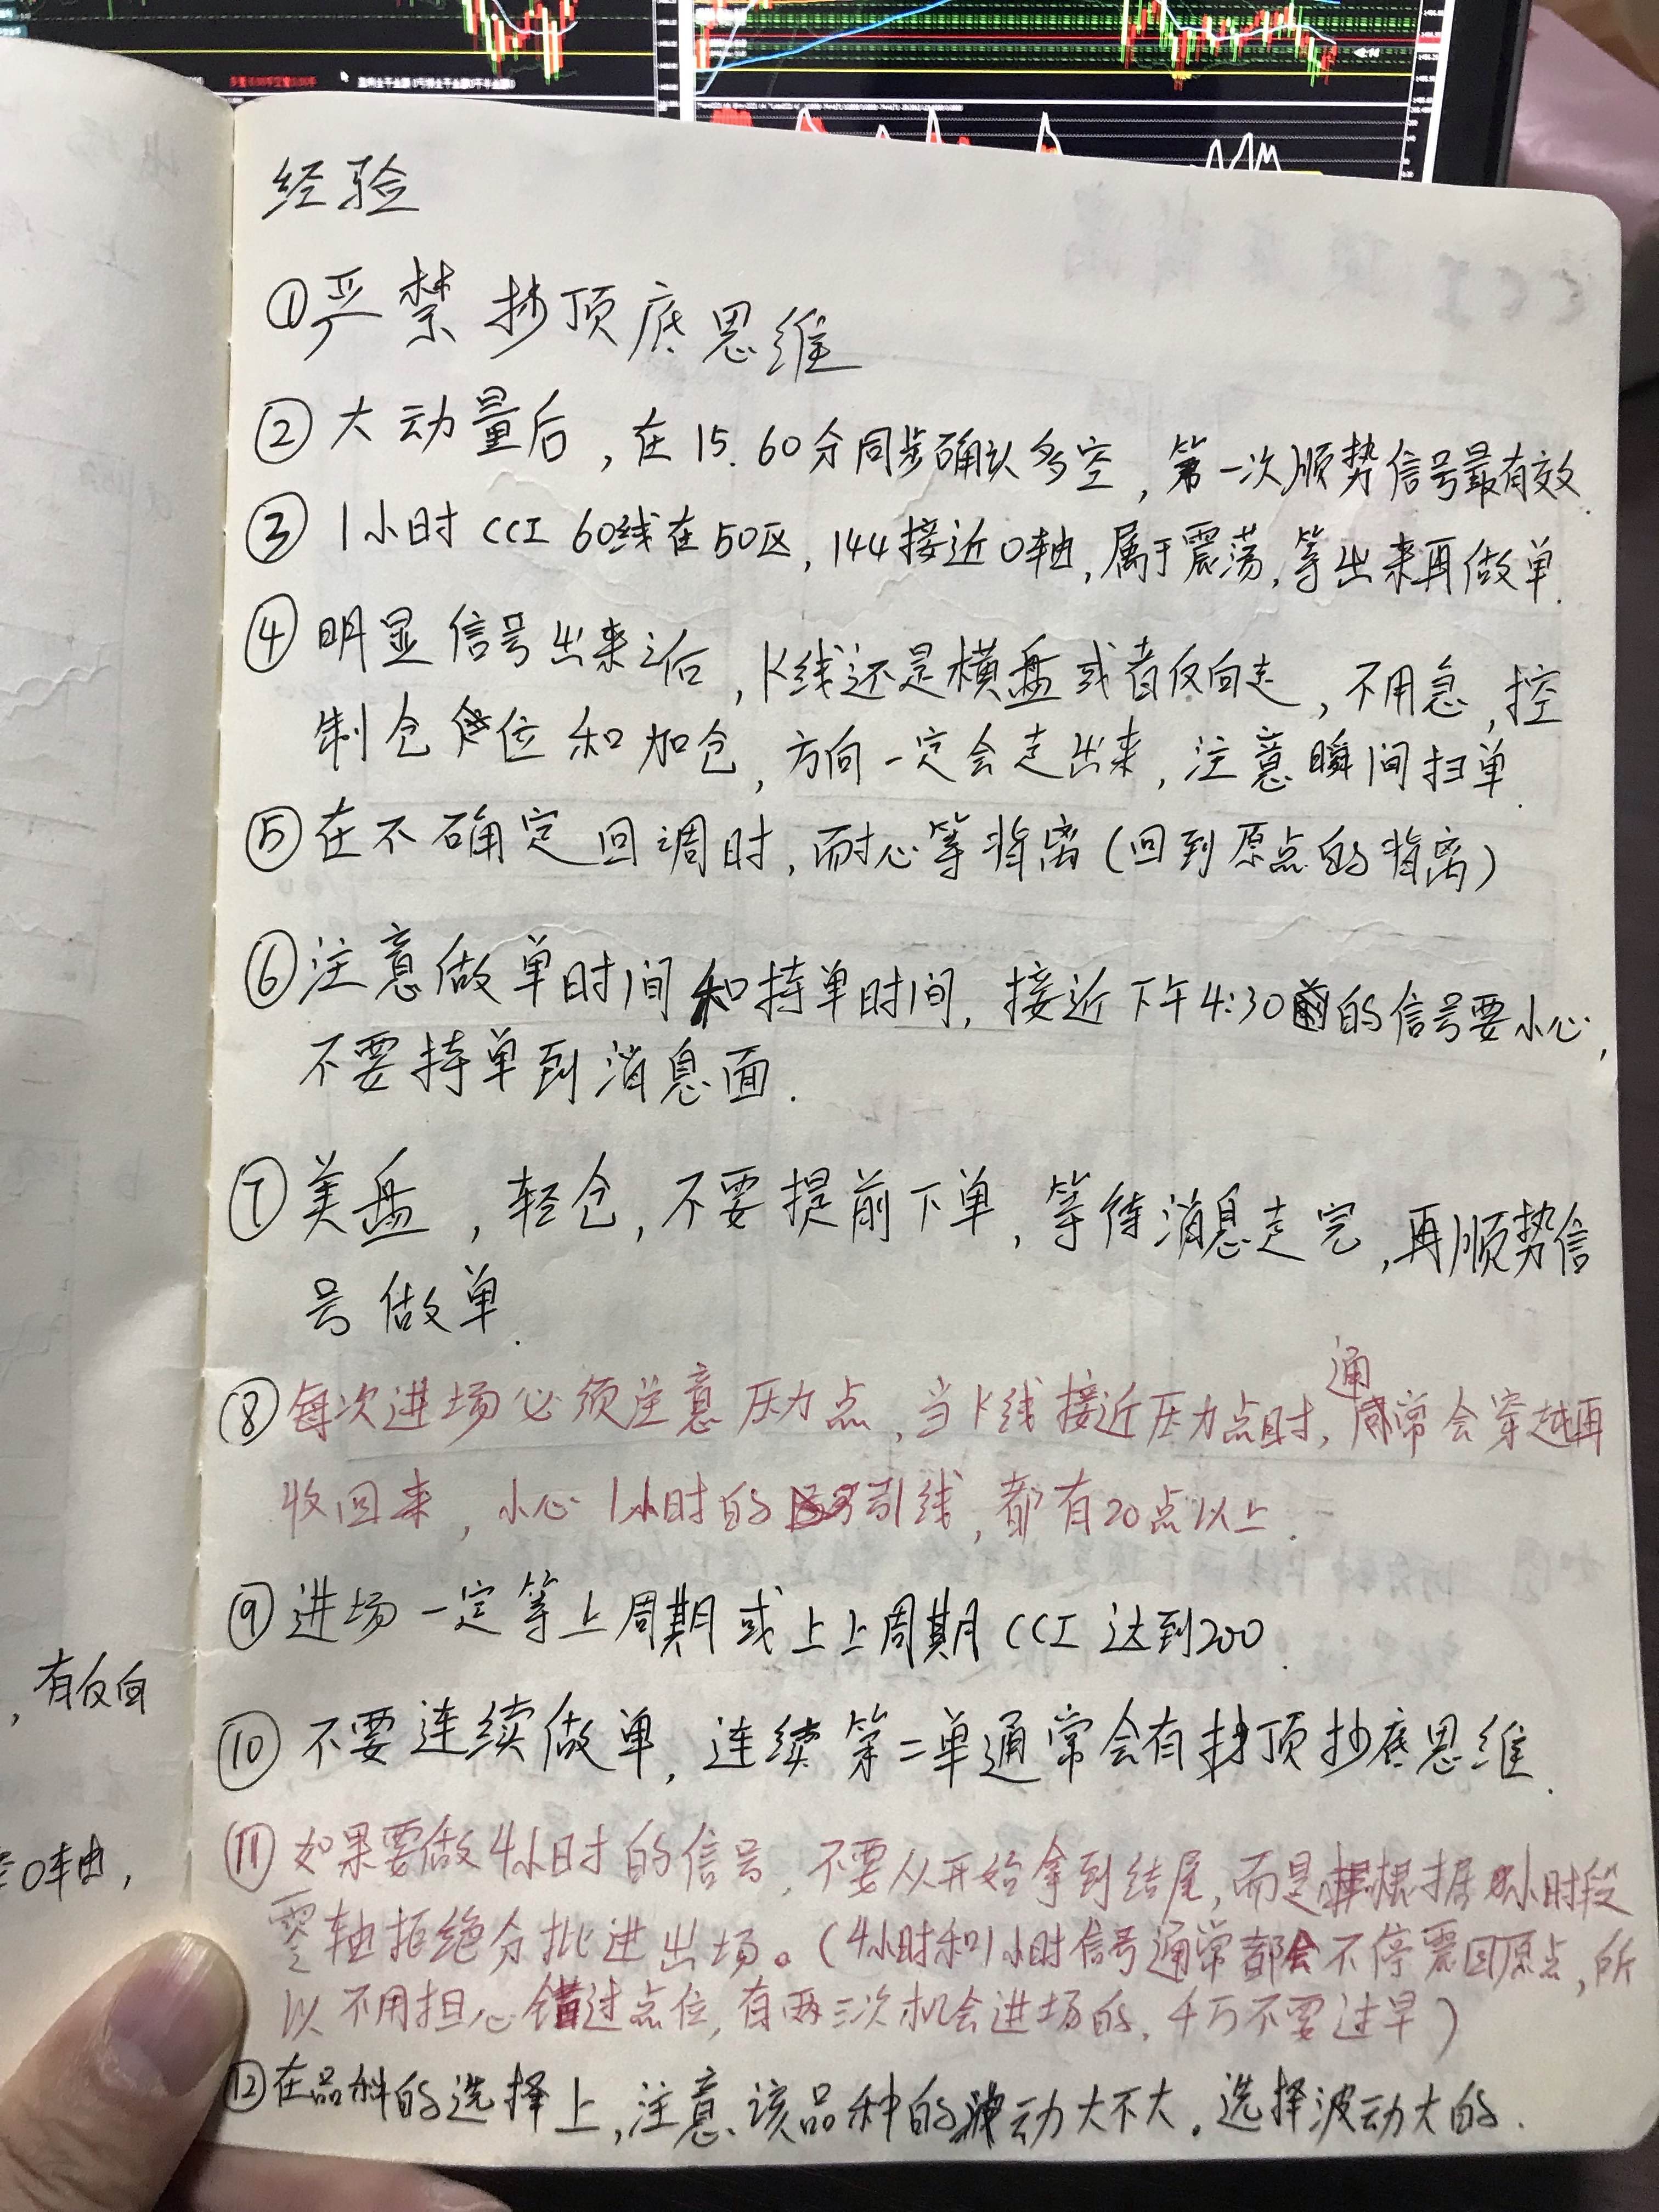 经验
①严禁抄顶底思维
②大动量后,在15.60分同步确认多空,第一次顺势信号最有效.
③1小时CCI 60线在50区,144接近0轴,属于震荡,等出来再做单.
④明显信号出来之后,K线还是横盘或者反向走,不用急,控
制仓位和加仓,方向一定会走出来,注意瞬间扫单.
⑤在不确定回调时,耐心等背离(回到原点的背离)
⑥注意做单时间和持单时间,接近下午4:30前的信号要小心,
不要持单到消息面.
⑦美盘,轻仓,不要提前下单,等待消息走完,再顺势信
号做单.
⑧每次进场必须注意压力点,当K线接近压力点时,通常会穿越再
收回来,小心1小时的引线,都有20点以上.
⑨进场一定等上周期或上上周期CCI达到200.
⑩不要连续做单,连续第二单通常会有抄顶抄底思维.
⑪如果要做4小时的信号,不要从开始拿到结尾,而是根据小时段
零轴拒绝分批进出场。(4小时和1小时信号通常都会不停震回原点,所
以不用担心错过点位,有两三次机会进场的,千万不要过早)
⑫在品种的选择上,注意、该品种的波动大不大。选择波动大的.
,有反向
0轴,